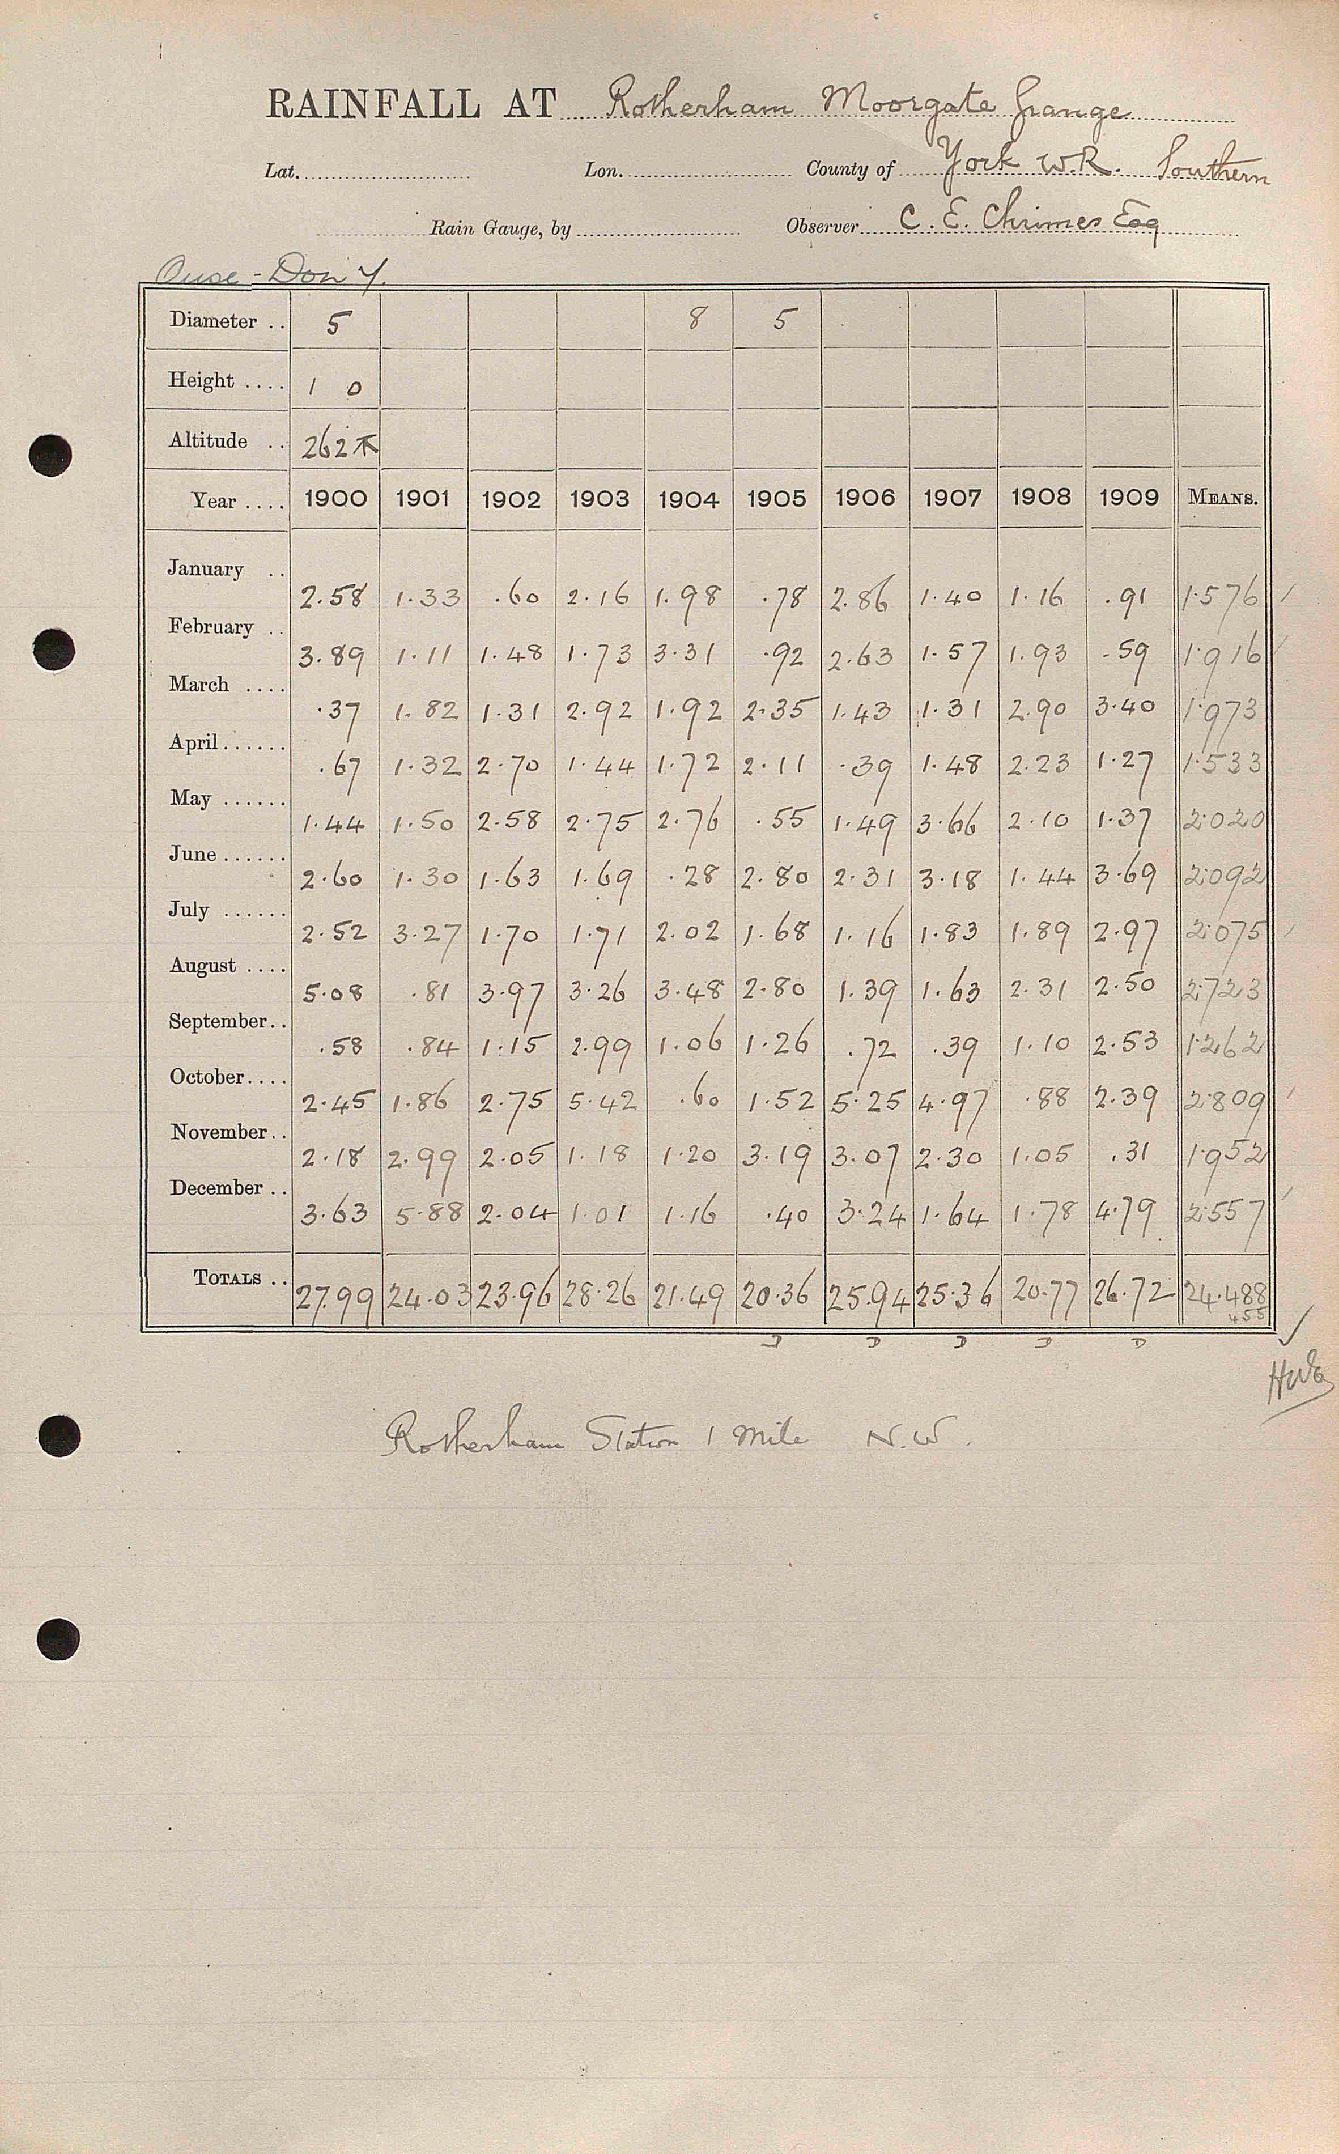 RAINFALL AT Rotherham Moorgate Grange
Lat. Lon. County of York W.R. Southern
Rain Gauge, by Observer C. E. Chrimes Esq
Ouse - Don
Diameter .. 5 8 5
Height .... 1 0
Altitude .. 262
Year .... 1900 1901 1902 1903 1904 1905 1906 1907 1908 1909 MEANS.
January .. 2.58 1.33 .60 2.16 1.98 .78 2.86 1.40 1.16 .91 1.576
February .. 3.89 1.11 1.48 1.73 3.31 .92 2.63 1.57 1.93 .59 1.916
March .... .37 1.82 1.31 2.92 1.92 2.35 1.43 1.31 2.90 3.40 1.973
April ...... .67 1.32 2.70 1.44 1.72 2.11 .39 1.48 2.23 1.27 1.533
May ...... 1.44 1.50 2.58 2.75 2.76 .55 1.49 3.66 2.10 1.37 2.020
June ...... 2.60 1.30 1.63 1.69 .28 2.80 2.31 3.18 1.44 3.69 2.092
July ...... 2.52 3.27 1.70 1.71 2.02 1.68 1.16 1.83 1.89 2.97 2.075
August .... 5.08 .81 3.97 3.26 3.48 2.80 1.39 1.63 2.31 2.50 2.723
September.. .58 .84 1.15 2.99 1.06 1.26 .72 .39 1.10 2.53 1.262
October.... 2.45 1.86 2.75 5.42 .60 1.52 5.25 4.97 .88 2.39 2.809
November.. 2.18 2.99 2.05 1.18 1.20 3.19 3.07 2.30 1.05 .31 1.952
December .. 3.63 5.88 2.04 1.01 1.16 .40 3.24 1.64 1.78 4.79 2.557
TOTALS .. 27.99 24.03 23.96 28.26 21.49 20.36 25.94 25.36 20.77 26.72 24.488
455
D D D D D
Rotherham Station 1 Mile N.W.